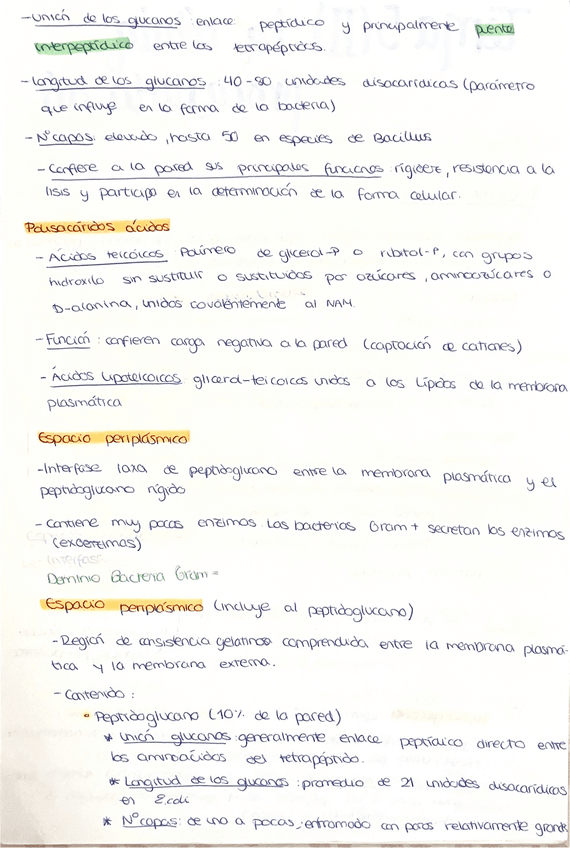 -Unión de los glucanos: enlace peptídico y principalmente puente
interpeptídico entre los tetrapéptidos.
-Longitud de los glucanos: 40-80 unidades disacarídicas (parámetro
que influye en la forma de la bacteria)
-Nº capas: elevado, hasta 50 en especies de Bacillus
-Confiere a la pared sus principales funciones: rigidez, resistencia a la
lisis y participa en la determinación de la forma celular.
Polisacáridos ácidos
-Ácidos teicoicos: Polímero de glicerol-P o ribitol-P, con grupos
hidroxilo sin sustituir o sustituidos por azúcares, aminoazúcares o
D-alanina, unidos covalentemente al NAM.
-Función: confieren carga negativa a la pared (captación de cationes)
-Ácidos lipoteicoicos: glicerol-teicoicos unidos a los lípidos de la membrana
plasmática
Espacio periplásmico
-Interfase laxa de peptidoglucano entre la membrana plasmática y el
peptidoglucano rígido
-Contiene muy pocas enzimas. Las bacterias Gram + secretan las enzimas
(exoenzimas)
Interfase
Dominio Bacteria Gram -
Espacio periplásmico (incluye al peptidoglucano)
-Región de consistencia gelatinosa comprendida entre la membrana plasmá-
tica y la membrana externa.
-Contenido:
• Peptidoglucano (10% de la pared)
* Unión glucanos: generalmente enlace peptídico directo entre
los aminoácidos del tetrapéptido.
* Longitud de los glucanos: promedio de 21 unidades disacarídicas
en E.coli
* Nº capas: de una a pocas; entramado con poros relativamente grande